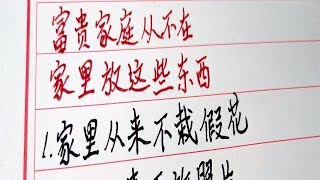 富贵家庭从不在
家里放这些东西
1.家里从来不栽假花